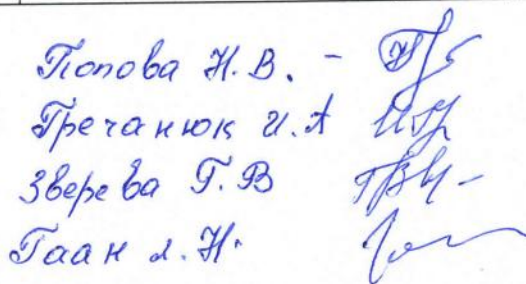 Попова Н.В. -
Гречанюк И.А
Зверева Г.В
Гаан Л.Н.